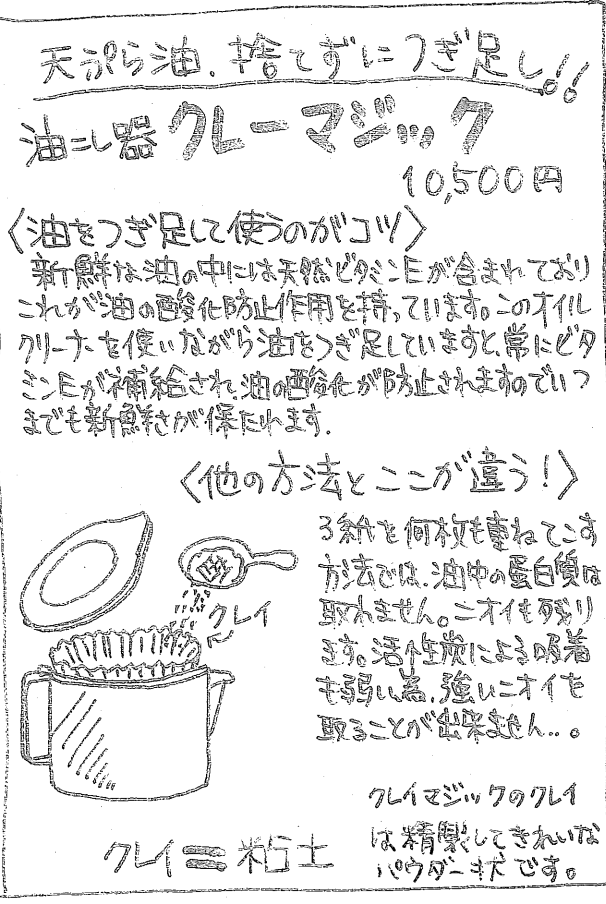 天ぷら油、捨てずにつぎ足し!!
油こし器 クレーマジック
10,500円
〈油をつぎ足して使うのがコツ〉
新鮮な油の中には天然ビタミンEが含まれており
これが油の酸化防止作用を持っています。このオイル
クリーナーを使いながら油をつぎ足していますと、常にビタ
ミンEが補給され、油の酸化が防止されますのでいつ
までも新鮮さが保たれます.
〈他の方法とここが違う!〉
ろ紙を何枚も重ねてこす
方法では、油中の蛋白質は
取れません。ニオイも残り
ます。活性炭による吸着
も弱い為、強いニオイを
取ることが出来ません...。
クレイ
クレイマジックのクレイ
は精製してきれいな
パウダー状です。
クレイ=粘土